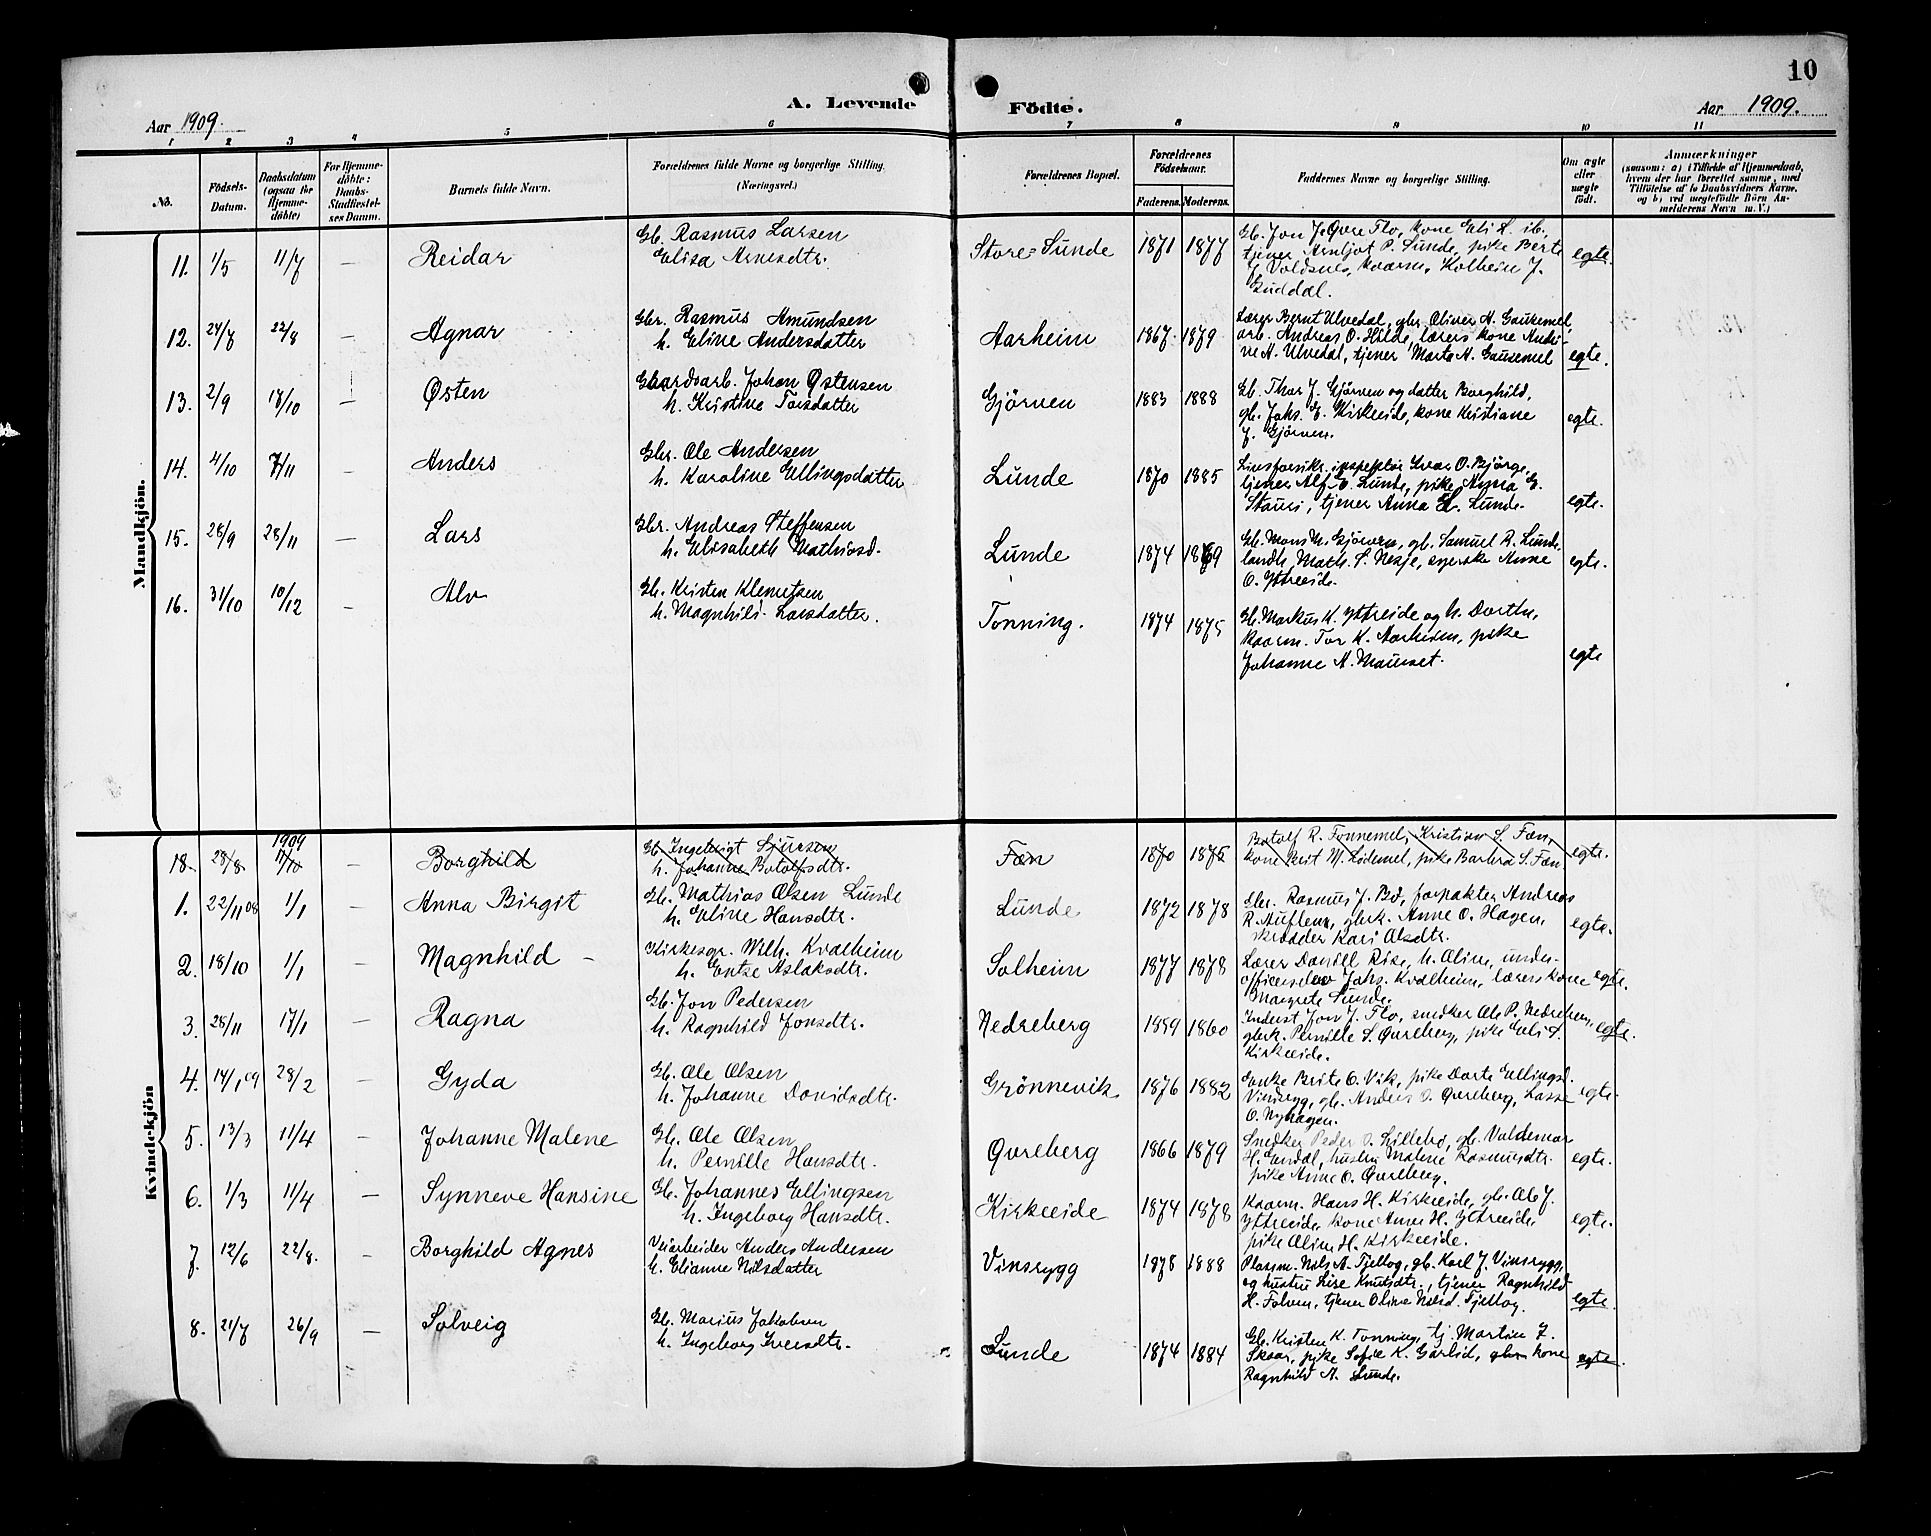 10
A. Levende Födte.
Aar 1909.
Aar 1909.
1 2 3 4 5 6 7 8 9 10 11
No.
Födsels-Datum.
Daabsdatum (ogsaa for Hjemme-döbte)
For Hjemme-döbte: Daabs-Stadfæstel-ses Datum.
Barnets fulde Navn.
Forældrenes fulde Navne og borgerlige Stilling.
(Næringsvei.)
Forældrenes Bopæl.
Forældrenes Födselsaar.
Faderens. Moderens.
Faddernes Navne og borgerlige Stilling.
Om ægte eller uægte födt.
Anmærkninger
(saasom: a) i Tilfælde af Hjemmedaab,
hvem der har forrettet samme, med
Tilföielse af to Daabsvidners Navne,
og b) ved uægtefödte Börn An-
melderens Navn m. V.)
Mandkjön.
11. 1/5 11/7 — Reidar
Gb. Rasmus Larsen
Elisa Arnesdtr.
Store-Sunde 1871 1877
Gb. Jon J. Qvre Flo, kone Eli L. ib.,
tjener Arnljot P. Sunde, pike Berte
J. Voldsnes, kaarm. Kolbein J.
Guddal.
egte.
12. 24/7 22/8 — Agnar
Gbr. Rasmus Amundsen
h. Eline Andersdatter
Aarheim 1867. 1879
Lærer Bernt Ulvedal, gbr. Oliver A. Gausemel,
arb. Andreas O. Hilde, lærers kone Andri-
ne A. Ulvedal, tjener Marta A. Gausemel
egte.
13. 2/9 17/10 — Østen
Gaardsarb. Johan Østensen
h. Kristine Torsdatter
Gjörven 1883 1888
Gb. Thor J. Gjörven og datter Borghild,
gb. Johs. E. Kirkeeide, kone Kristiane
J. Gjörven.
egte.
14. 4/10 7/11 — Anders
Gbr. Ole Andersen
h. Karoline Ellingsdatter
Lunde 1870 1885
Livsforsikr. inspektör Ivar O. Bjørge,
tjener Alf E. Lunde, pike Anna E.
Stauri, tjener Anna E. Lunde.
egte.
15. 28/9 28/11 — Lars
Gbr. Andreas Steffensen
h. Elisabeth Mathiasd.
Lunde 1874 1869
Gb. Mons M. Gjörven, gb. Samuel R. Lunde,
landh. Math. S. Nesje, syerske Anne
O. Ytreeide.
egte.
16. 31/10 10/12 — Alv
Gb. Kristen Klemetsen
h. Magnhild Larsdatter.
Tonning. 1874 1875
Gb. Markus K. Ytreeide og h. Dorthe,
kaarm. Tor K. Aarheim, pike
Johanne A. Maurset.
egte
Kvindekjön
1909
18. 28/8 17/10 — Borghild
Gb. Ingebrigt Sjursen
h. Johanne Botolfsdtr.
Fæn 1870 1875
Botolf R. Tonnemel, Kristian S. Fæn,
kone Brit M. Lødemel, pike Barbra S. Fæn
egte.
1. 22/11 08 1/1 — Anna Birgit
Gb. Mathias Olsen Lunde
h. Eline Hansdtr.
Lunde 1872 1878
Gbr. Rasmus J. Bö, forpakter Andreas
R. Auflem, gbrk. Anne O. Hagen,
skrædder Kari Olsdtr.
egte.
2. 18/10 1/1 — Magnhild —
Kirkesgr. Wilh. Kvalheim
h. Entse Aslaksdtr.
Solheim 1877 1878
Lærer Daniel Rise, h. Oline, under-
officerselev Johs. Kvalheim, lærers kone
Margrete Sunde.
egte.
3. 28/11 17/1 — Ragna
Gb. Jon Pedersen
h. Ragnhild Jonsdtr.
Nedreberg 1859 1860
Inderst Jon J. Flo, snedker Ole P. Nedreberg,
gbrk. Pernille S. Qvreberg, pike Eli S.
Kirkeeide.
egte.
4. 14/1 09 28/2 — Gyda
Gb. Ole Olsen
h. Johanne Davidsdtr.
Grönnevik 1876 1882
Enke Brite O. Vik, pike Dorte Ellingsd.
Vinsrygg, gb. Anders O. Qvreberg, Lasse
O. Nyhagen.
egte.
5. 13/3 11/4 — Johanne Malene
Gb. Ole Olsen
h. Pernille Hansdtr.
Qvreberg 1866 1879
Snedker Peder O. Lillebø, gb. Valdemar
H. Erdal, hustru Malene Rasmusdtr.
pike Anne O. Qvreberg.
egte.
6. 1/3 11/4 — Synneve Hansine
Gb. Johannes Ellingsen
h. Ingeborg Hansdtr.
Kirkeeide 1874 1878
Kaarm. Hans H. Kirkeeide, gb. Ole J.
Ytreeide, kone Anne H. Ytreeide,
pike Oline H. Kirkeeide.
egte.
7. 12/6 22/8. — Borghild Agnes
Veiarbeider Anders Andersen
h. Elianne Nilsdatter
Vinsrygg 1878 1888
Plassm. Nils A. Fjellog, gb. Karl J. Vinsrygg,
og hustru Lise Knutsdtr., tjener Ragnhild
H. Folven, tjener Oline Nilsd. Fjellog.
egte.
8. 21/7 26/9 — Solveig
Gb. Marius Jakobsen
h. Ingeborg Iversdtr.
Lunde 1874 1884
Gb. Kristen K. Tonning, tj. Martin J.
Skaar, pike Sofie K. Garlid, gbr. kone
Ragnhild A. Lunde.
egte.